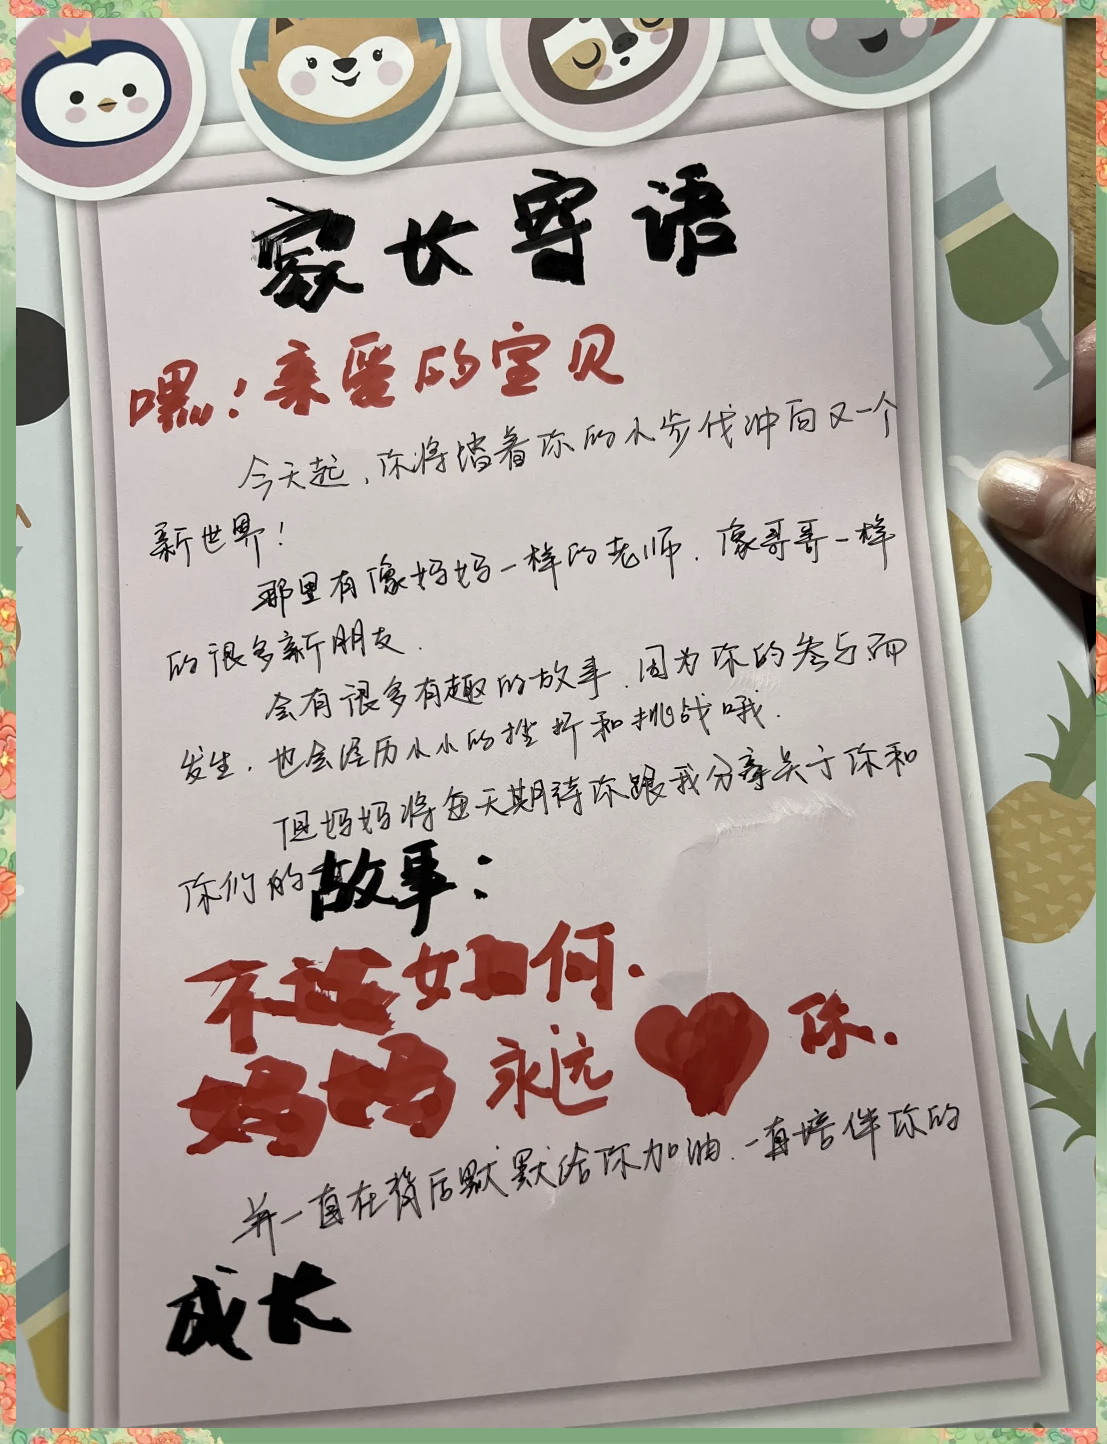 家长寄语
嘿！亲爱的宝贝
今天起，你将踏着你的小步伐冲向又一个
新世界！
那里有像妈妈一样的老师，像哥哥一样
的很多新朋友．
会有很多有趣的故事，因为你的参与而
发生．也会经历小小的挫折和挑战哦．
但妈妈将每天期待你跟我分享关于你和
你们的故事：
不论如何．
妈妈永远❤你．
并一直在背后默默给你加油．一直培伴你的
成长